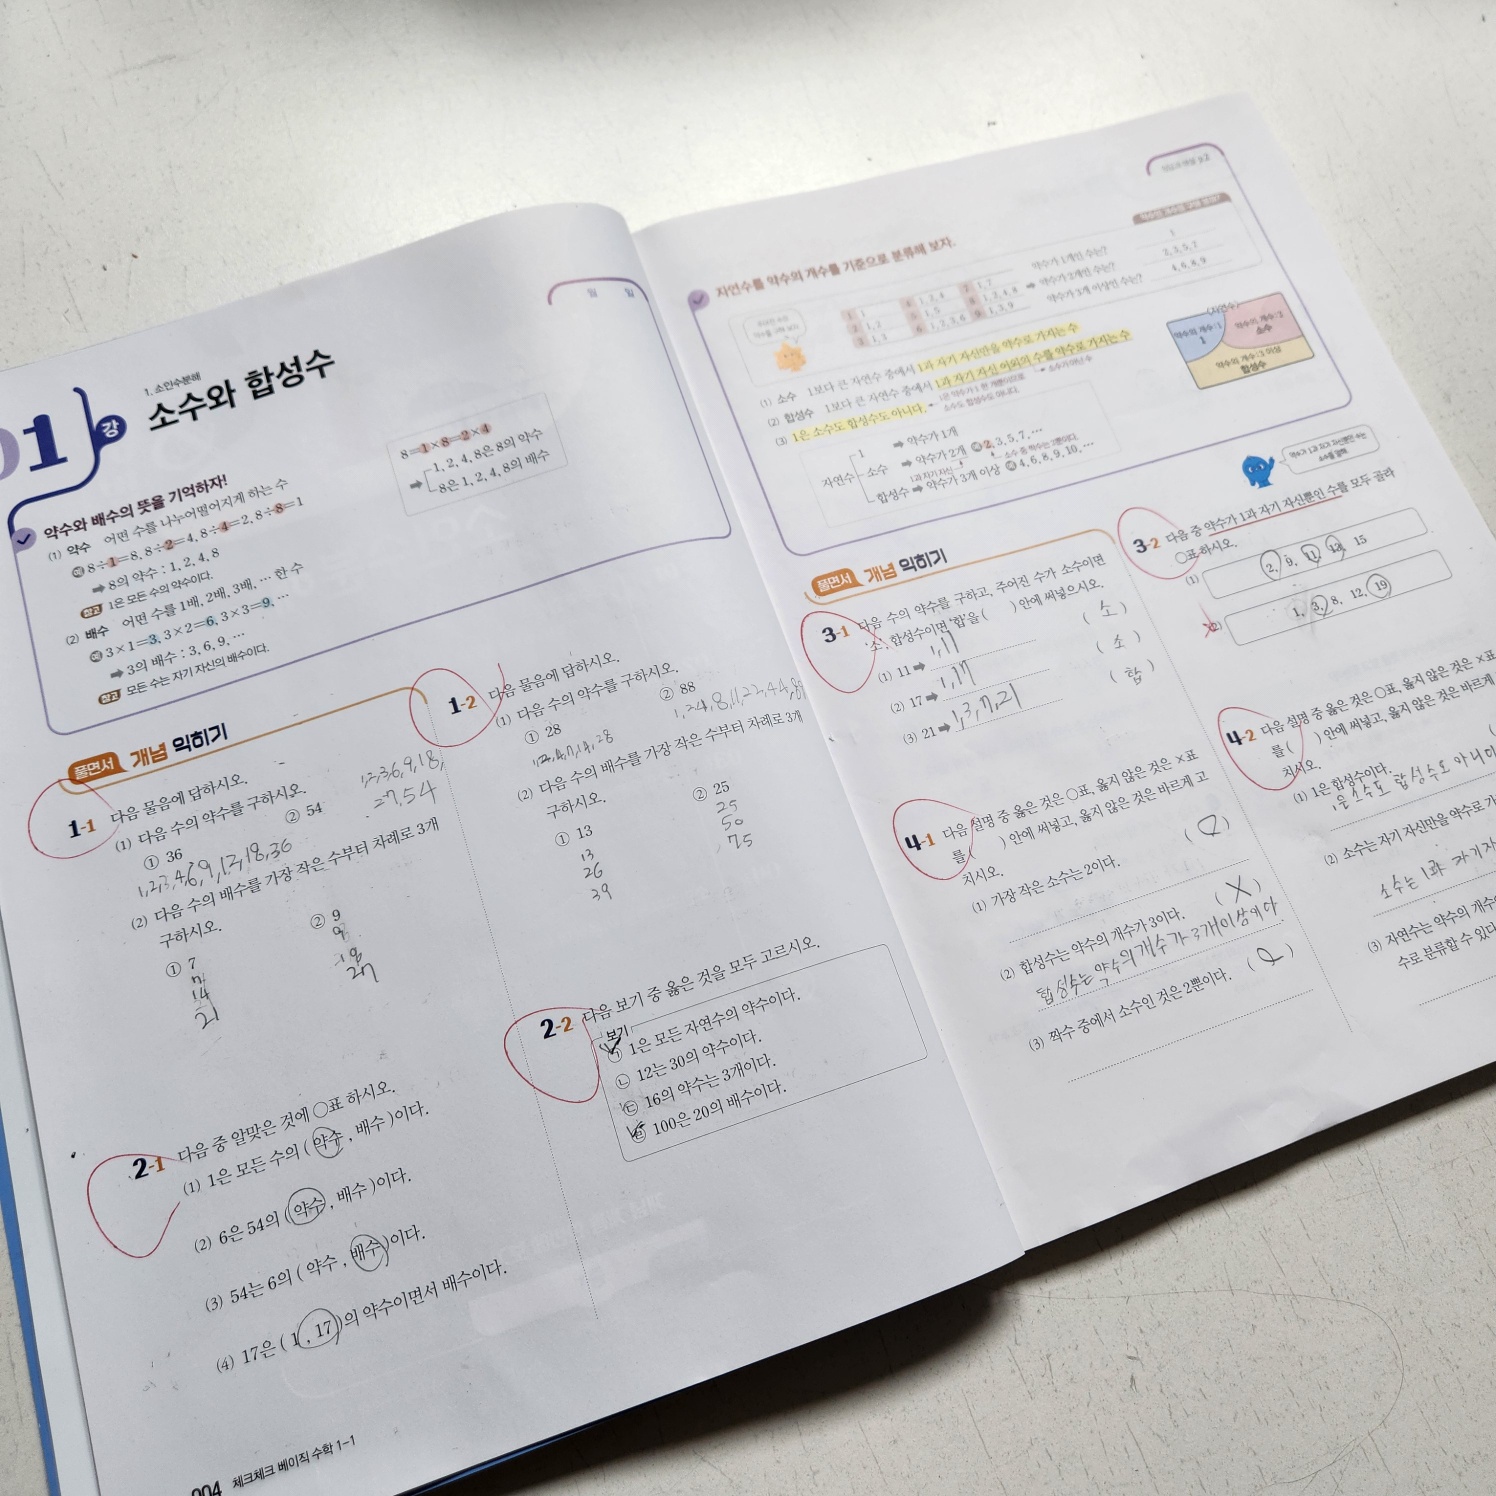 월 일
1. 소인수분해
01강 소수와 합성수
약수와 배수의 뜻을 기억하자!
(1) 약수 어떤 수를 나누어떨어지게 하는 수
예 8÷1=8, 8÷2=4, 8÷4=2, 8÷8=1
➡ 8의 약수 : 1, 2, 4, 8
참고 1은 모든 수의 약수이다.
(2) 배수 어떤 수를 1배, 2배, 3배, … 한 수
예 3×1=3, 3×2=6, 3×3=9, …
➡ 3의 배수 : 3, 6, 9, …
참고 모든 수는 자기 자신의 배수이다.
8=1×8=2×4
➡ 1, 2, 4, 8은 8의 약수
8은 1, 2, 4, 8의 배수
풀면서 개념 익히기
1-1 다음 물음에 답하시오.
(1) 다음 수의 약수를 구하시오.
① 36 ② 54
1,2,3,4,6,9,12,18,36
1,2,3,6,9,18,
27,54
(2) 다음 수의 배수를 가장 작은 수부터 차례로 3개
구하시오.
① 7 ② 9
7 9
14 18
21 27
2-1 다음 중 알맞은 것에 ○표 하시오.
(1) 1은 모든 수의 ( 약수 , 배수 )이다.
(2) 6은 54의 ( 약수 , 배수 )이다.
(3) 54는 6의 ( 약수 , 배수 )이다.
(4) 17은 ( 1 , 17 )의 약수이면서 배수이다.
004 체크체크 베이직 수학 1-1
1-2 다음 물음에 답하시오.
(1) 다음 수의 약수를 구하시오.
① 28 ② 88
1,2,4,7,14,28
1,2,4,8,11,22,44,88
(2) 다음 수의 배수를 가장 작은 수부터 차례로 3개
구하시오.
① 13 ② 25
13 25
26 50
39 75
2-2 다음 보기 중 옳은 것을 모두 고르시오.
보기
㉠ 1은 모든 자연수의 약수이다.
㉡ 12는 30의 약수이다.
㉢ 16의 약수는 3개이다.
㉣ 100은 20의 배수이다.
자연수를 약수의 개수를 기준으로 분류해 보자.
1 1
2 1, 2
3 1, 3
4 1, 2, 4
5 1, 5
6 1, 2, 3, 6
7 1, 7
8 1, 2, 4, 8
9 1, 3, 9
약수가 1개인 수는? 1
➡ 약수가 2개인 수는? 2, 3, 5, 7
약수가 3개 이상인 수는? 4, 6, 8, 9
(1) 소수 1보다 큰 자연수 중에서 1과 자기 자신만을 약수로 가지는 수
(2) 합성수 1보다 큰 자연수 중에서 1과 자기 자신 이외의 수를 약수로 가지는 수
소수가 아닌 수
(3) 1은 소수도 합성수도 아니다.
소수도 합성수도 아니다.
(자연수)
약수의 개수 : 1
1
약수의 개수 : 2
소수
약수의 개수 : 3 이상
합성수
자연수
1 ➡ 약수가 1개
소수 ➡ 약수가 2개 예 2, 3, 5, 7, …
1과 자기 자신 소수 중 짝수는 2뿐이다.
합성수 ➡ 약수가 3개 이상 예 4, 6, 8, 9, 10, …
풀면서 개념 익히기
3-1 다음 수의 약수를 구하고, 주어진 수가 소수이면
'소', 합성수이면 '합'을 ( ) 안에 써넣으시오.
(1) 11 ➡ 1,11 ( 소 )
(2) 17 ➡ 1,17 ( 소 )
(3) 21 ➡ 1,3,7,21 ( 합 )
4-1 다음 설명 중 옳은 것은 ○표, 옳지 않은 것은 ×표
를 ( ) 안에 써넣고, 옳지 않은 것은 바르게 고
치시오.
(1) 가장 작은 소수는 2이다. ( O )
(2) 합성수는 약수의 개수가 3이다. ( X )
합성수는 약수의 개수가 3개이상이다
(3) 짝수 중에서 소수인 것은 2뿐이다. ( O )
3-2 다음 중 약수가 1과 자기 자신뿐인 수를 모두 골라
○표 하시오.
(1) 2, 9, 11, 13, 15
(2) 1, 3, 8, 12, 19
4-2 다음 설명 중 옳은 것은 ○표, 옳지 않은 것은 ×표
를 ( ) 안에 써넣고, 옳지 않은 것은 바르게
치시오.
(1) 1은 합성수이다.
1은 소수도 합성수도 아니
(2) 소수는 자기 자신만을 약수로
소수는 1과 자기
(3) 자연수는 약수의 개수
수로 분류할 수 있다